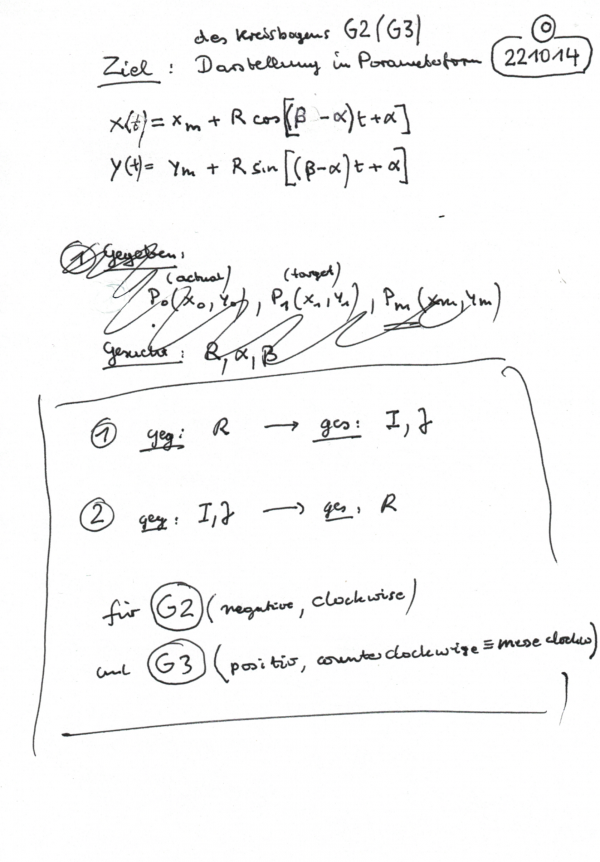 des Kreisbogens G2 (G3)
0
Ziel : Darstellung in Parameterform
221014
x(t) = xm + R cos[(β - α)t + α]
y(t) = ym + R sin[(β-α)t + α]
① Gegeben:
(actual) (target)
P0(x0, y0), P1(x1, y1), Pm(xm, ym)
Gesucht : R, α, β
① geg: R → ges: I, J
② geg: I, J → ges. R
für G2 (negative, clockwise)
und G3 (positiv, counterclockwise ≡